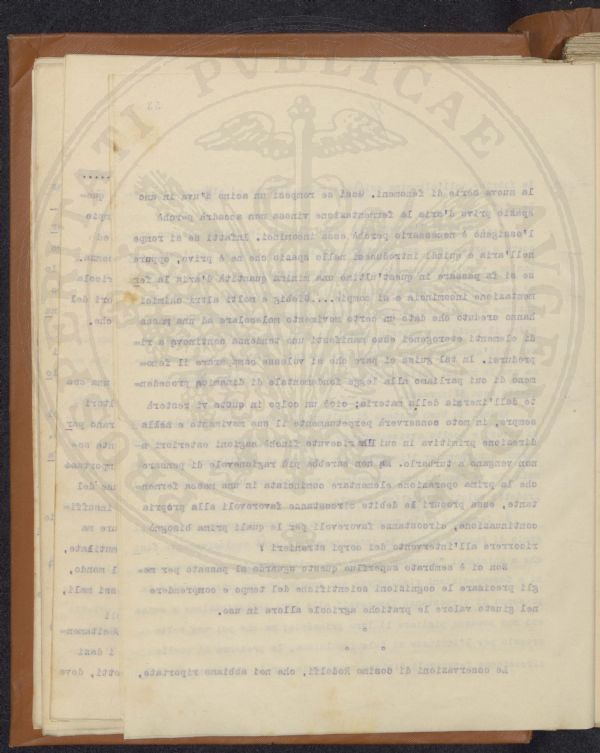 PROSPERITATI PVBLICAE AVGENDAE
33
la nuova serie di fenomeni. Così se rompesi un acino d'uva in uno
spazio privo d'aria la fermentazione vinosa non accadrà perchè
l'ossigeno è necessario perchè essa incominci. Infatti se si rompe
nell'aria e quindi introducesi nello spazio che ne è privo, oppure
se si fa passare in quest'ultimo una minima quantità d'aria la fer
mentazione incomincia e si compie....Stebig e molti altri chimici
hanno creduto che dato un certo movimento molecolare ad una massa
di elementi eterogenei esso manifesti una tendenza continova a ri=
prodursi. In tal guisa ci pare che si volesse comparare il feno=
meno di cui parliamo alla legge fondamentale di dinamica proceden=
te dell'inerzia della materia; cioè un colpo in quiete vi resterà
sempre, in moto conserverà perpetuamente il suo movimento e nella
direzione primitiva in cui lo ricevette finchè cagioni esteriori
non vengano a turbarlo. Ma non sarebbe più ragionevole di pensare
che la prima operazione elementare cominciata in una massa fermen=
tante, essa procuri le debite circostanze favorevoli alla propria
continuazione, circostanze favorevoli per le quali prima bisognò
ricorrere all'intervento dei corpi stranieri ?
Non ci è sembrato superfluo questo sguardo al passato per me=
gli precisare le cognizioni scientifiche del tempo e comprendere
nel giusto valore le pratiche agricole allora in uso.
Le osservazioni di Cosimo Ridolfi, che noi abbiamo riportate,
.....
que=
mpio
ed
enza.
ricola
ori del
che.
una cos
ltori
rano per
nte so=
mportasse
une del
insuffi=
ure ma
mutilate,
l mondo,
ssi mali,
li
i dazi
otti, dove